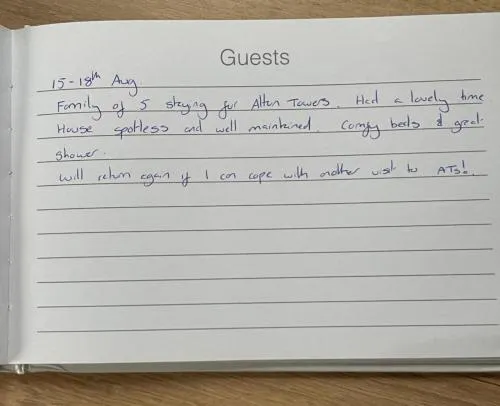 Guests
15-18th Aug.
Family of 5 staying for Alton Towers. Had a lovely time
House spotless and well maintained. Comfy beds & great
shower.
Will return again if I can cope with another visit to ATs!.